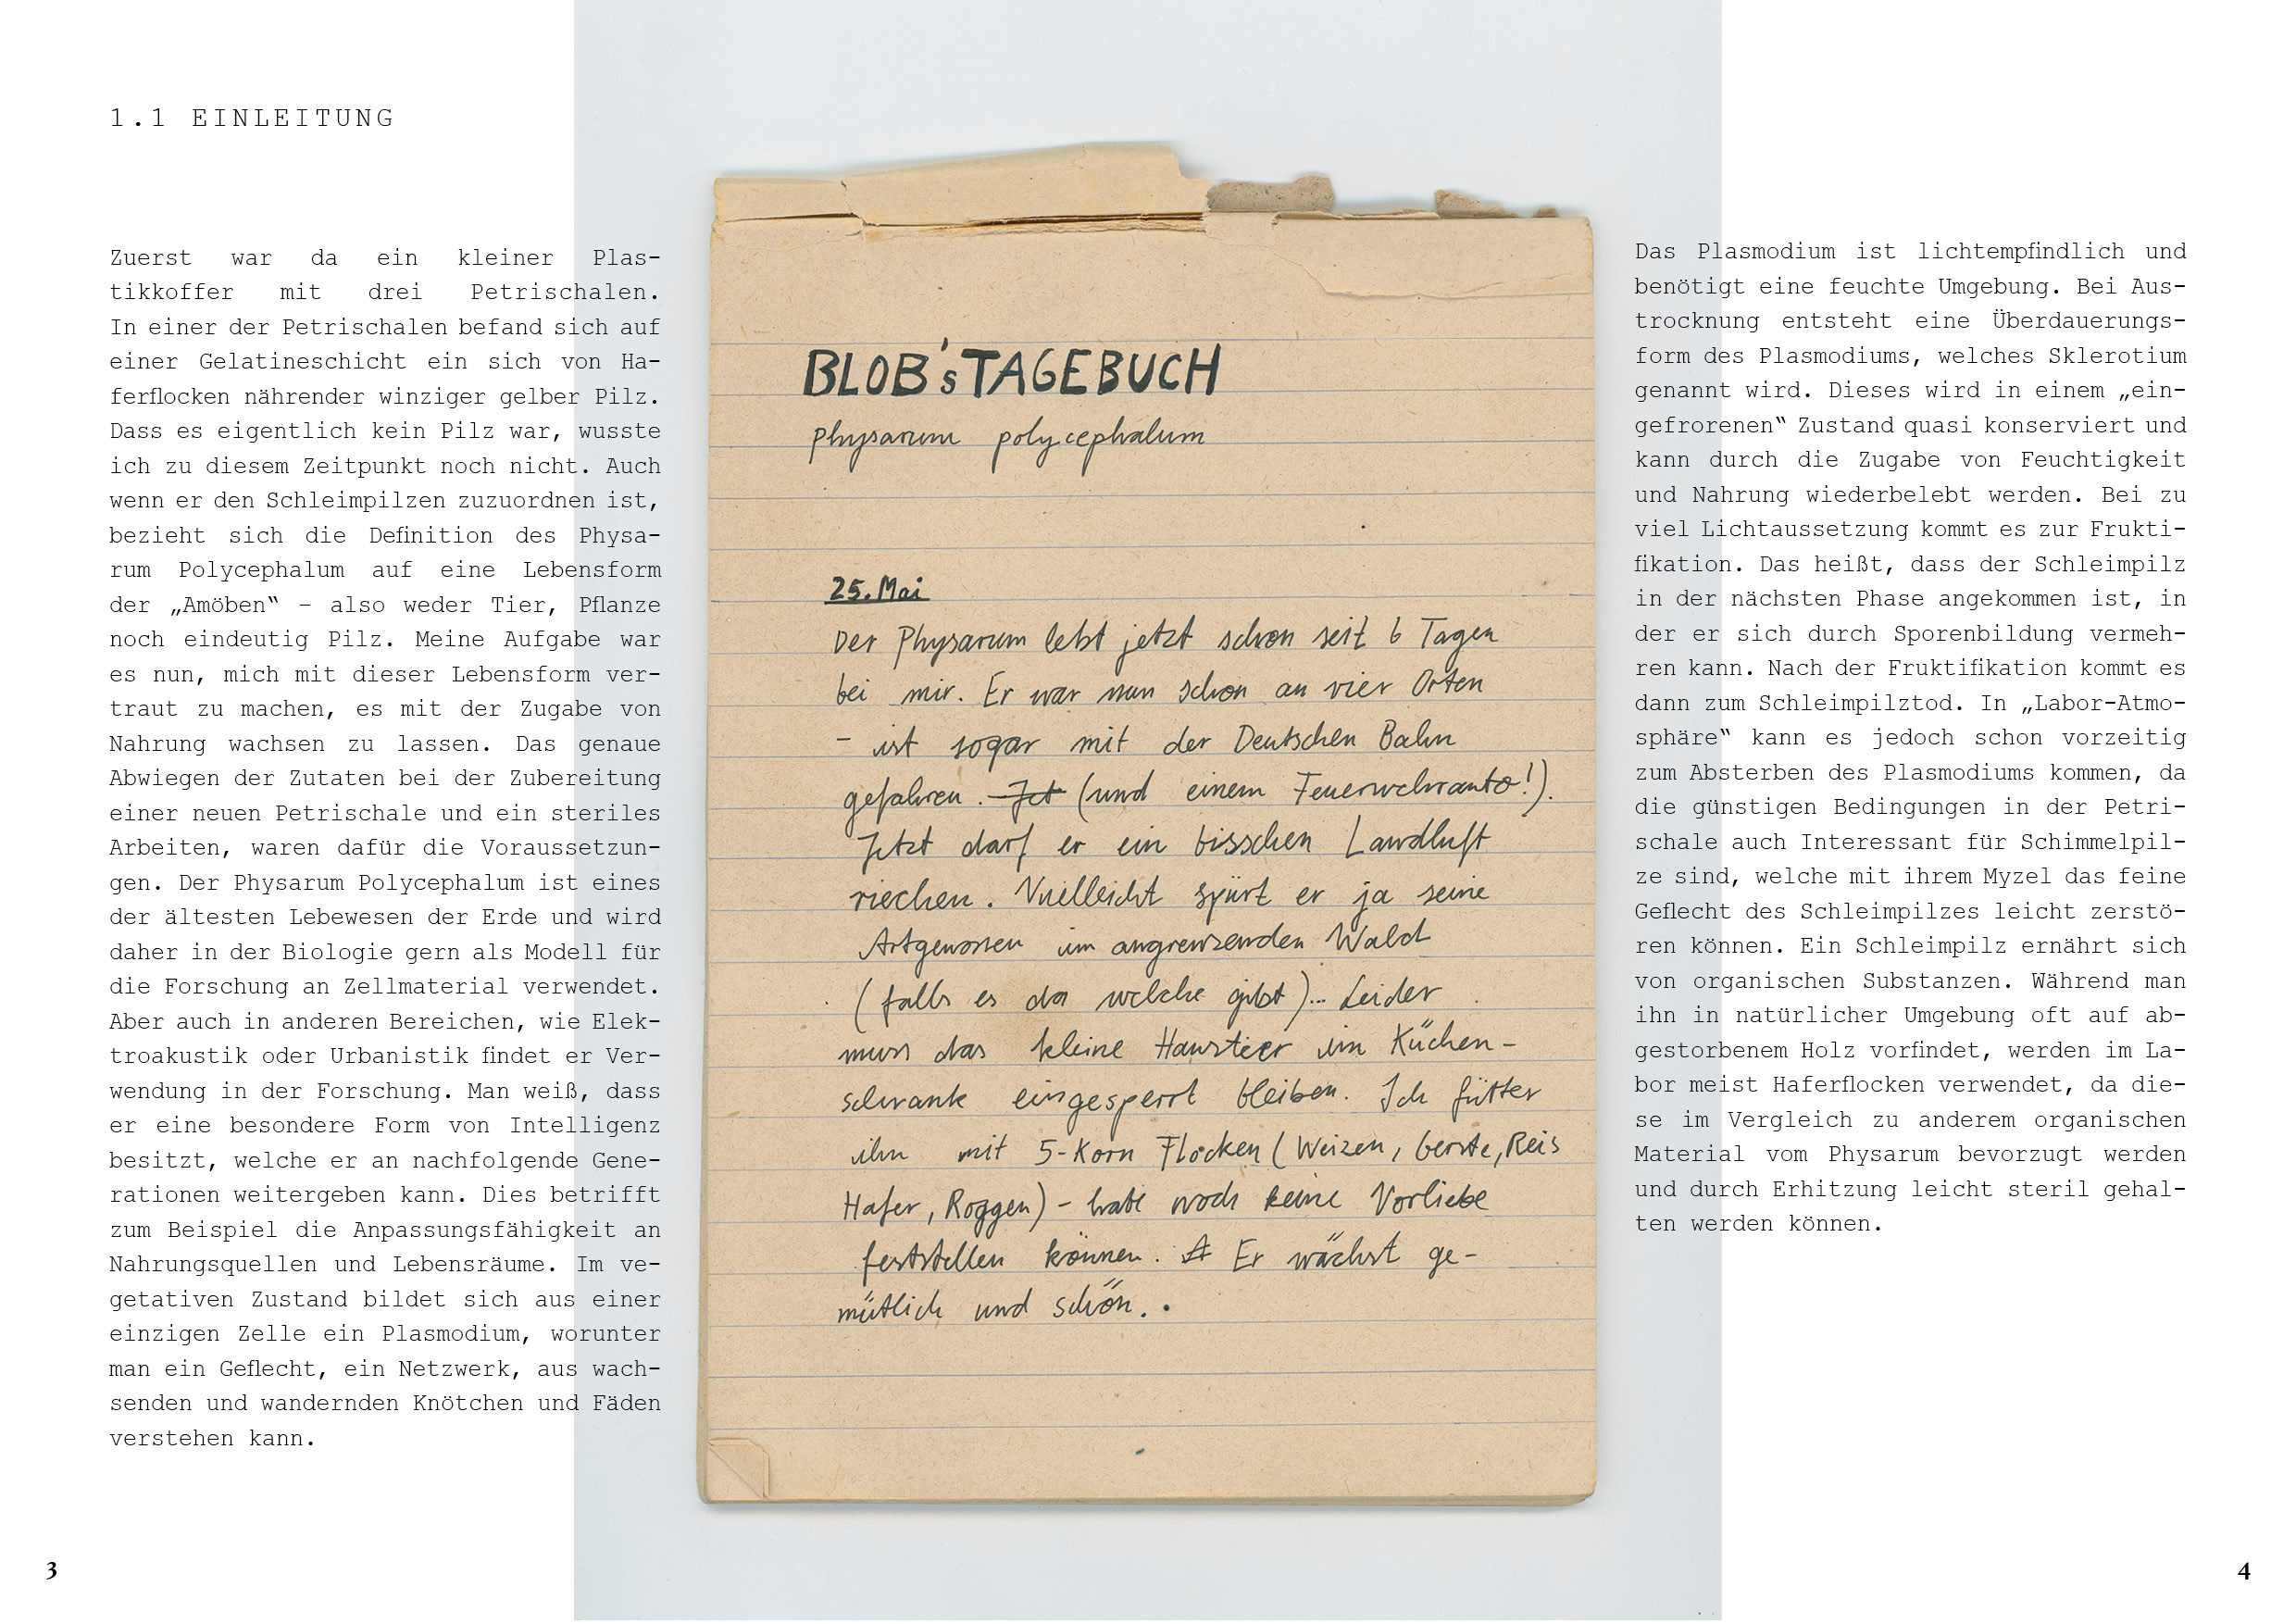 1.1 EINLEITUNG
Zuerst war da ein kleiner Plas-
tikkoffer mit drei Petrischalen.
In einer der Petrischalen befand sich auf
einer Gelatineschicht ein sich von Ha-
ferflocken nährender winziger gelber Pilz.
Dass es eigentlich kein Pilz war, wusste
ich zu diesem Zeitpunkt noch nicht. Auch
wenn er den Schleimpilzen zuzuordnen ist,
bezieht sich die Definition des Physa-
rum Polycephalum auf eine Lebensform
der „Amöben‟ – also weder Tier, Pflanze
noch eindeutig Pilz. Meine Aufgabe war
es nun, mich mit dieser Lebensform ver-
traut zu machen, es mit der Zugabe von
Nahrung wachsen zu lassen. Das genaue
Abwiegen der Zutaten bei der Zubereitung
einer neuen Petrischale und ein steriles
Arbeiten, waren dafür die Voraussetzun-
gen. Der Physarum Polycephalum ist eines
der ältesten Lebewesen der Erde und wird
daher in der Biologie gern als Modell für
die Forschung an Zellmaterial verwendet.
Aber auch in anderen Bereichen, wie Elek-
troakustik oder Urbanistik findet er Ver-
wendung in der Forschung. Man weiß, dass
er eine besondere Form von Intelligenz
besitzt, welche er an nachfolgende Gene-
rationen weitergeben kann. Dies betrifft
zum Beispiel die Anpassungsfähigkeit an
Nahrungsquellen und Lebensräume. Im ve-
getativen Zustand bildet sich aus einer
einzigen Zelle ein Plasmodium, worunter
man ein Geflecht, ein Netzwerk, aus wach-
senden und wandernden Knötchen und Fäden
verstehen kann.
3
BLOB's TAGEBUCH
physarum polycephalum
25. Mai
Der Physarum lebt jetzt schon seit 6 Tagen
bei mir. Er war nun schon an vier Orten
- ist sogar mit der Deutschen Bahn
gefahren. Jet (und einem Feuerwehrauto!).
Jetzt darf er ein bisschen Landluft
riechen. Vielleicht spürt er ja seine
Artgenossen im angrenzenden Wald
(falls es da welche gibt)... Leider
muss das kleine Haustier im Küchen-
schrank eingesperrt bleiben. Ich fütter
ihn mit 5-Korn Flocken (Weizen, Gerste, Reis
Hafer, Roggen) - habe noch keine Vorliebe
feststellen können. Er wächst ge-
mütlich und schön..
Das Plasmodium ist lichtempfindlich und
benötigt eine feuchte Umgebung. Bei Aus-
trocknung entsteht eine Überdauerungs-
form des Plasmodiums, welches Sklerotium
genannt wird. Dieses wird in einem „ein-
gefrorenen‟ Zustand quasi konserviert und
kann durch die Zugabe von Feuchtigkeit
und Nahrung wiederbelebt werden. Bei zu
viel Lichtaussetzung kommt es zur Frukti-
fikation. Das heißt, dass der Schleimpilz
in der nächsten Phase angekommen ist, in
der er sich durch Sporenbildung vermeh-
ren kann. Nach der Fruktifikation kommt es
dann zum Schleimpilztod. In „Labor-Atmo-
sphäre‟ kann es jedoch schon vorzeitig
zum Absterben des Plasmodiums kommen, da
die günstigen Bedingungen in der Petri-
schale auch Interessant für Schimmelpil-
ze sind, welche mit ihrem Myzel das feine
Geflecht des Schleimpilzes leicht zerstö-
ren können. Ein Schleimpilz ernährt sich
von organischen Substanzen. Während man
ihn in natürlicher Umgebung oft auf ab-
gestorbenem Holz vorfindet, werden im La-
bor meist Haferflocken verwendet, da die-
se im Vergleich zu anderem organischen
Material vom Physarum bevorzugt werden
und durch Erhitzung leicht steril gehal-
ten werden können.
4